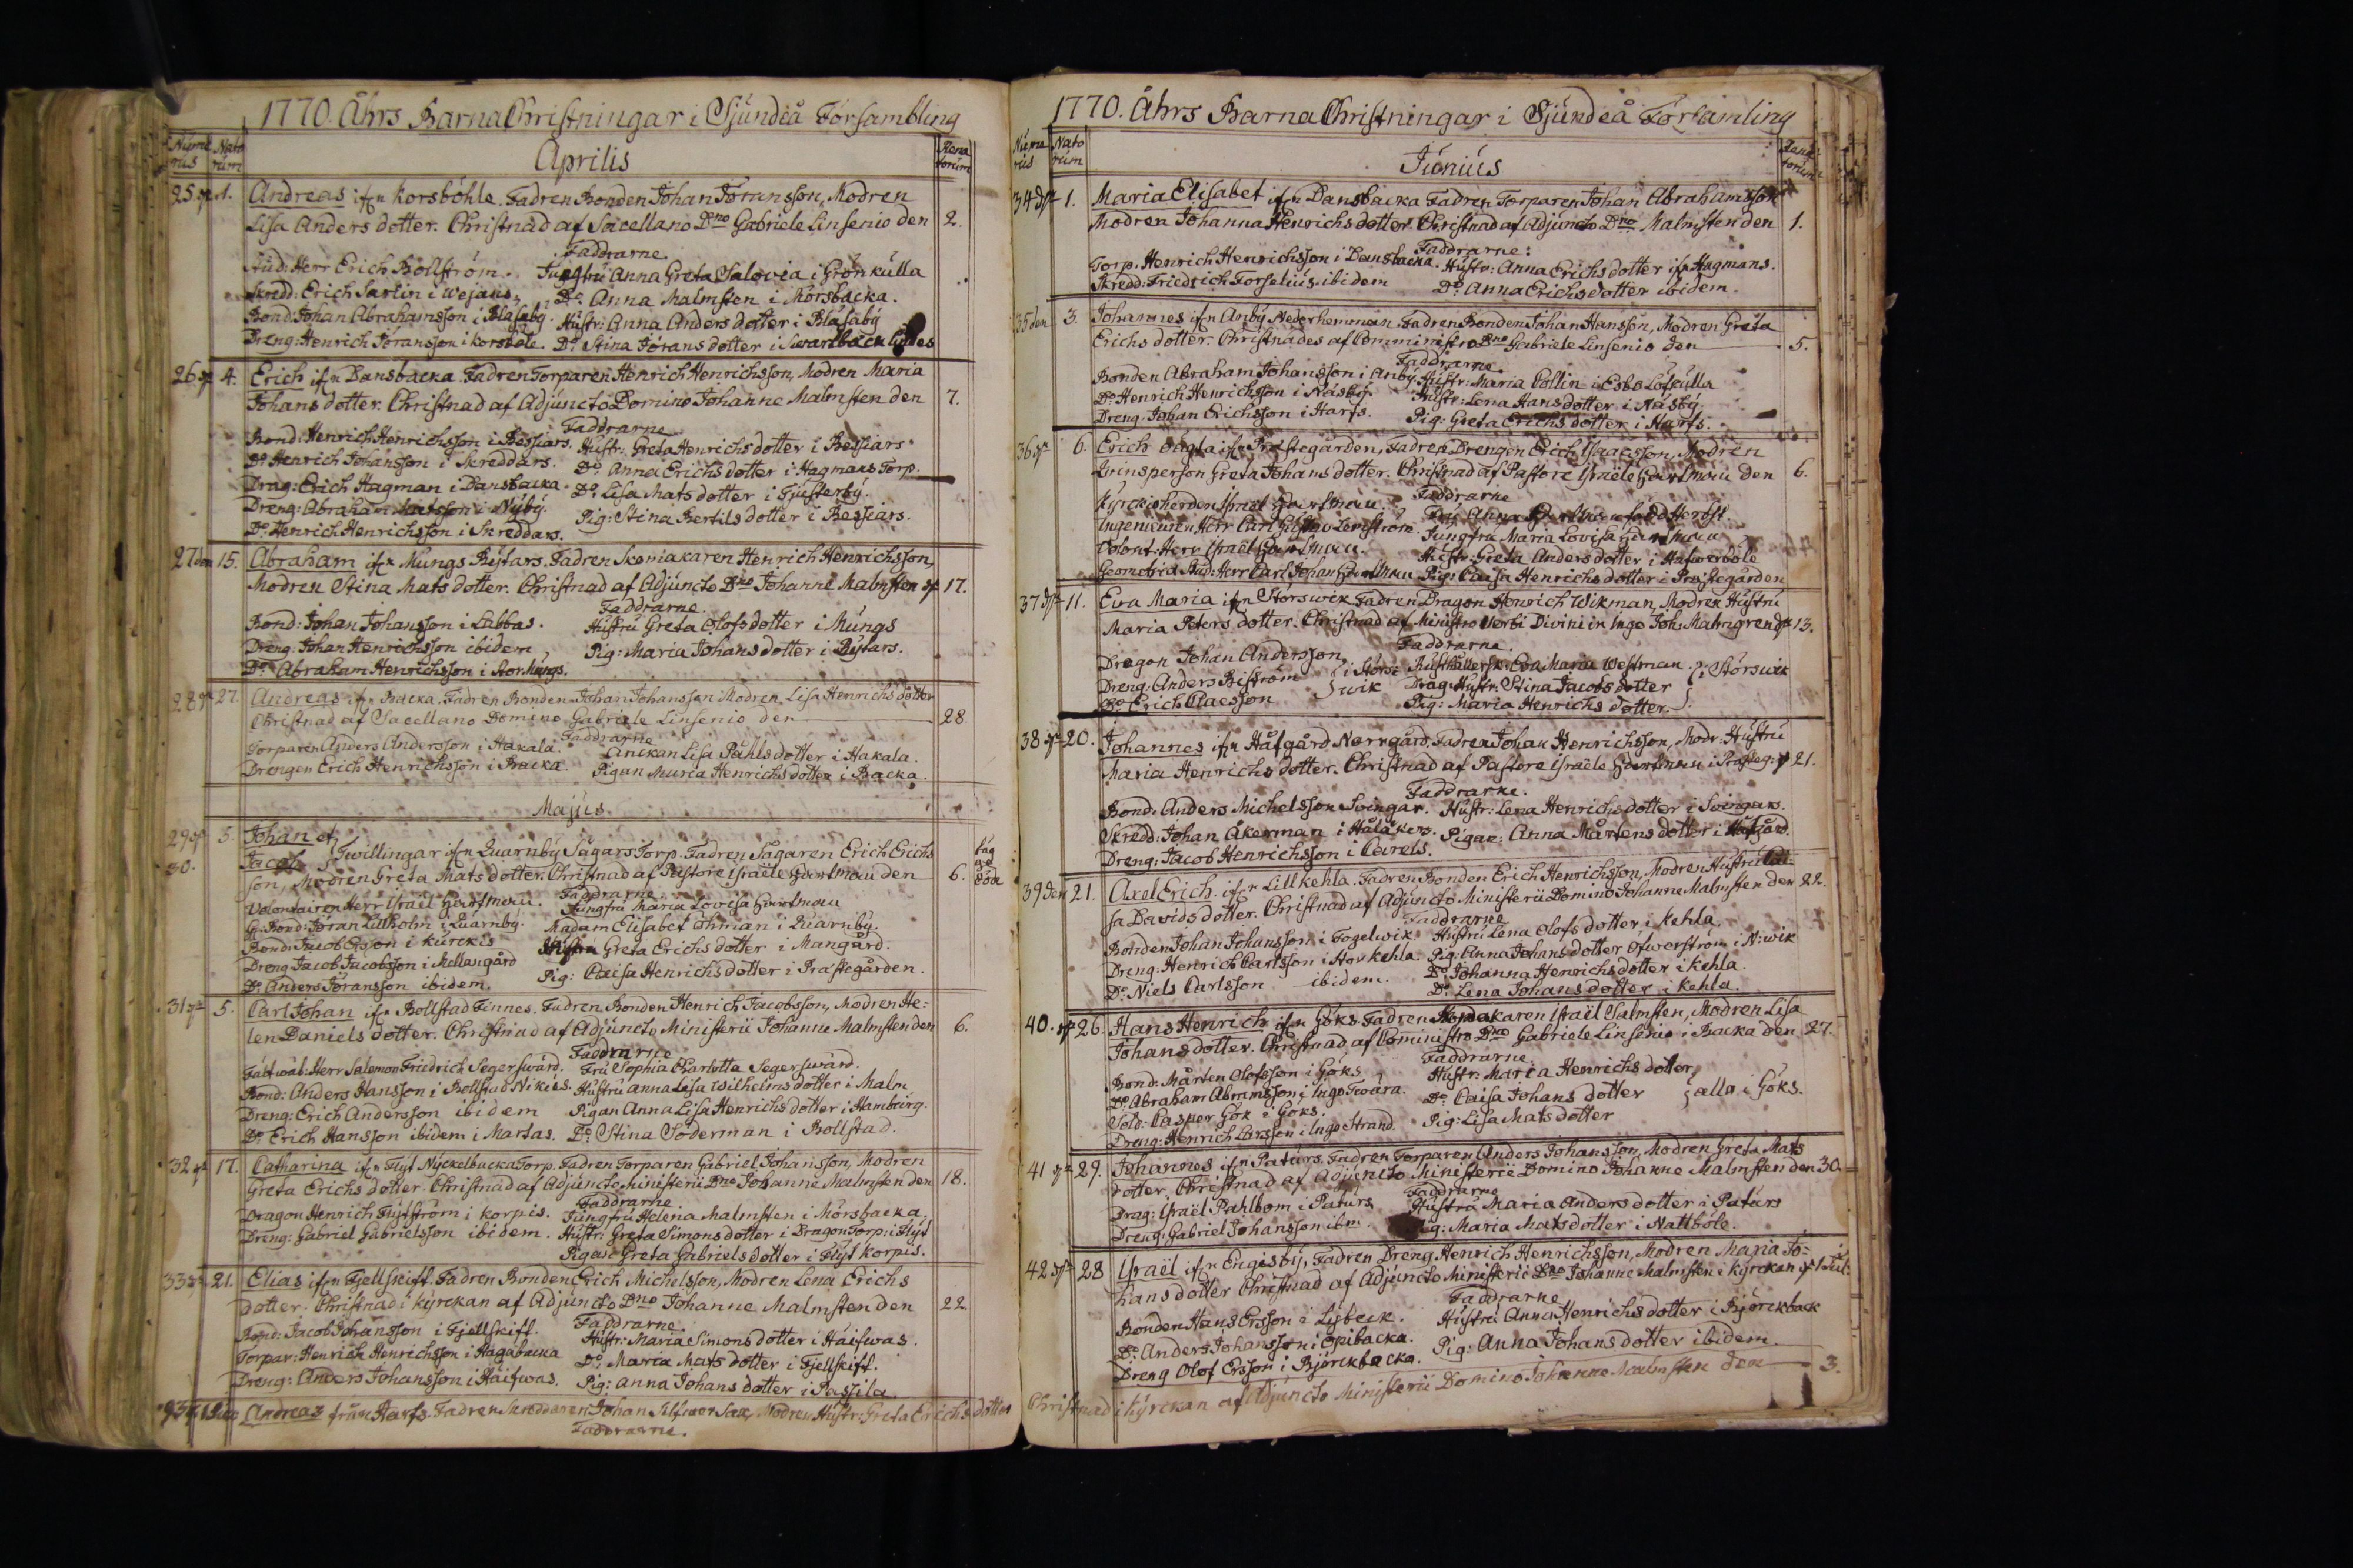 1770. Åhrs BarnaChristningar i Sjundeå Försambling
Nume rus Nato rum Aprilis Rena torum
25 1. Andreas ifrn Korsböhle. Fadren Bonden Johan Jöransson, Modren
Lisa Anders dotter. Christnad af Sacellano Dno Gabriele Linsenio den 2.
Faddrarne.
Stud: Herr Erich Bollström. Jungfru Anna Greta Salovia i Grönkulla
Skredd: Erich Sarlin i Wejans. Do Anna Malmsten i Mörsbacka.
Bond: Johan Abrahamsson i Blasaby. Hustr: Anna Anders dotter i Blasaby
Dreng: Henrich Jöransson i Korsböle. Do Stina Jörans dotter i Swartbäck
26 4. Erich ifrn Dansbacka. Fadren Torparen Henrich Henrichsson, Modren Maria
Johans dotter. Christnad af Adjuncto Domino Johanne Malmsten den 7.
Faddrarne
Bond: Henrich Henrichsson i Bessiars. Hustr: Greta Henrichs dotter i Bessiars
Do Henrich Johansson i Skreddars. Do Anna Erichs dotter i Hagmans Torp.
Drag: Erich Hagman i Dansbacka. Do Lisa Mats dotter i Tjusterby.
Dreng: Abraham Matsson i Nyby. Pig: Stina Bertils dotter i Bessiars.
Do Henrich Henrichsson i Skreddars.
27 den 15. Abraham ifrn Mungs Rytars. Fadren Skomakaren Henrich Henrichsson,
Modren Stina Mats dotter. Christnad af Adjuncto Dno Johanne Malmsten 17.
Faddrarne.
Bond: Johan Johansson i Labbas. Hustru Greta Olofs dotter i Mungs
Dreng: Johan Henrichsson ibidem, Pig: Maria Johans dotter i Rytars.
Do Abraham Henrichsson i Stor Mungs.
28 27. Andreas ifrn Backa. Fadren Bonden Johan Johansson Modren Lisa Henrichs dotter
Christnad af Sacellano Domino Gabriele Linsenio den 28.
Faddrarne
Torparen Anders Andersson i Hakala. Änckan Lisa Påhls dotter i Hakala.
Drengen Erich Henrichsson i Backa. Pigan Maria Henrichs dotter i Backa.
Majus.
29 5. Johan et
30. Jacob Twillingar ifrn Quarnby Sågars Torp. Fadren Sågaren Erich Erichs
son, Modren Greta Mats dotter. Christnad af Pastore Israële den 6. döde
Faddrarne
Volontairen Herr Israël. Jungfru Maria Lovisa
Bond: Jöran Lillholm i Quarnby. Madam Elisabet Öhman i Quarnby.
Bond: Jacob Ersson i Kurckis Hustru Greta Erichs dotter i Mangård.
Dreng: Jacob Jacobsson i Mellangård Pig: Caisa Henrichs dotter i Prästegården.
Do Anders Jöransson ibidem.
31 5. Carl Johan ifrn Bollstad Finnes. Fadren Bonden Henrich Jacobsson, Modren He=
len Daniels dotter. Christnad af Adjuncto Ministerii Johanne Malmsten den 6.
Faddrarne
Herr Salomon Friedrich Segerswärd. Fru Sophia Charlotta Segerswärd.
Bond: Anders Hansson i Bollstad Nikus. Hustru Anna Lisa Wilhelms dotter i Malm
Dreng: Erich Andersson ibidem Pigan Anna Lisa Henrichs dotter i Hamburg.
Do Erich Hansson ibidem i Martas. Do Stina Söderman i Bollstad.
32 17. Catharina ifrn Flyt Nyckelbacka Torp. Fadren Torparen Gabriel Johansson, Modren
Greta Erichs dotter. Christnad af Adjuncto Ministerii Dno Johanne Malmsten den 18.
Faddrarne
Dragon Henrich Flytström i Korpis. Jungfru Helena Malmsten i Mörsbacka.
Dreng: Gabriel Gabrielsson ibidem. Hustr: Greta Simons dotter i Dragon Torp: i Flyt
Pigan Greta Gabriels dotter i Flyt Korpis.
33 21. Elias ifrn Fjellskiff. Fadren Bonden Erich Michelsson, Modren Lena Erichs
dotter. Christnad i Kyrckan af Adjuncto Dno Johanne Malmsten den 22.
Faddrarne.
Bond: Jacob Johansson i Fjellskiff. Hustr: Maria Simons dotter i Häifwas.
Torpar: Henrich Henrichsson i Hagabacka Do Maria Mats dotter i Fjellskiff.
Dreng: Anders Johansson i Häifwas. Pig: Anna Johans dotter i Passila.
Andreas från Harfs. Fadren Skreddaren Johan Silfwer Sax, Modren Hustr: Greta Erichs dotter
Faddrarne.
1770. Åhrs BarnaChristningar i Sjundeå Församling
Nume rus Nato rum Junius Rena torum
34 1. Maria Elisabet ifrn Dansbacka Fadren Torparen Johan Abrahamsson
Modren Johanna Henrichs dotter. Christnad af Adjuncto Dno Malmsten den 1.
Faddrarne:
Torp: Henrich Henrichsson i Dansbacka. Hustr: Anna Erichs dotter ifrn Hagmans.
Skredd: Friedrich Forselius ibidem Do Anna Erichs dotter ibidem.
35 den 3. Johannes ifrn Anby Nederhemman. Fadren Bonden Johan Hansson, Modren Greta
Erichs dotter. Christnades af Comministro Dno Gabriele Linsenio den 5.
Faddrarne.
Bonden Abraham Johansson i Anby. Hustr: Maria Collin i Esbo Löfkulla
Do Henrich Henrichsson i Näsby. Hustr: Lena Hans dotter i Näsby.
Dreng: Johan Erichsson i Harfs. Pig: Greta Erichs dotter i Harfs.
36 6. Erich oägta ifrn Prästegården, Fadren Drengen Erich Isaacsson, Modren
Qvinsperson Greta Johans dotter. Christnad af Pastore Israële den 6.
Faddrarne
Kyrckioherden Israel. Fru Anna född Herbst.
Ingenieuren Herr Carl Gustav Lenström. Jungfru Maria Lovisa
Volont: Herr Israël. Hustr: Greta Anders dotter i Hafwerböle
Geometriæ Stud: Herr Carl Johan Pig: Caisa Henrichs dotter i Prästegården
37 11. Eva Maria ifrn Störswik Fadren Dragon Henrich Wikman, Modren Hustru
Maria Peters dotter. Christnad af Ministro Verbi Divini in Ingo Joh: Malmgren d 13.
Faddrarne.
Dragon Johan Andersson, Eva Maria Westman.
Dreng: Anders Biström i Störs= wik Drag: Hustr: Stina Jacobs dotter i Störswik
Do Erich Claesson Pig: Maria Henrichs dotter.
38 20. Johannes ifrn Håfgård, Norrgård. Fadren Johan Henrichsson, Modr: Hustru
Maria Henrichs dotter. Christnad af Pastore Israële i Prästeg: 21.
Faddrarne.
Bond: Anders Michelsson Svingar. Hustr: Lena Henrichs dotter i Svingars.
Skredd: Johan Åkerman i Hålåkers. Pigan: Anna Mårtens dotter i Håfgård.
Dreng: Jacob Henrichsson i Carels.
39 den 21. Axel Erich ifrn Lillkehla. Fadren Bonden Erich Henrichsson, Modren Hustru Cai=
sa Davids dotter. Christnad af Adjuncto Ministerii Domino Johanne Malmsten den 22.
Faddrarne
Bonden Johan Johansson i Fogelwik Hustru Lena Olofs dotter i Kehla
Dreng: Henrich Carlsson i Storkehla. Pig: Anna Johans dotter Öfwerström i N:wik
Do Niels Carlsson ibidem. Do Johanna Henrichs dotter i Kehla.
Do Lena Johans dotter i Kehla.
40. 26. Hans Henrich ifrn Göks Fadren Israël Salmsten, Modren Lisa
Johans dotter. Christnad af Comministro Dno Gabriele Linsenio i Backa den 27.
Faddrarne.
Bond: Mårten Olofsson i Göks Hustr: Maria Henrichs dotter,
Do Abraham Abramsson i Ingo Twära. Do Caisa Johans dotter alla i Göks.
Sold: Casper Gök i Göks. Pig: Lisa Mats dotter
Dreng: Henrich Larsson i Ingo Strand.
41 29. Johannes ifrn Paturs. Fadren Torparen Anders Johansson, Modren Greta Mats
dotter. Christnad af Adjuncto Ministerii Domino Johanne Malmsten den 30.
Faddrarne
Drag: Israël Pahlbom i Paturs Hustru Maria Anders dotter i Paturs
Dreng: Gabriel Johansson ibm. Pig: Maria Mats dotter i Nattböle.
42 28 Israël ifrn Engisby, Fadren Dreng Henrich Henrichsson, Modren Maria Jo=
hans dotter Christnad af Adjuncto Ministerii Dno Johanne Malmsten i Kyrckan 1 Jul:
Faddrarne
Bonden Hans Ersson i Lybeck. Hustru Anna Henrichs dotter i Björckback
Do Anders Johansson i Spibacka. Pig: Anna Johans dotter ibidem
Dreng Olof Ersson i Björckbacka.
Christnad i Kyrckan af Adjuncto Ministerii Domino Johanne Malmsten den 3.